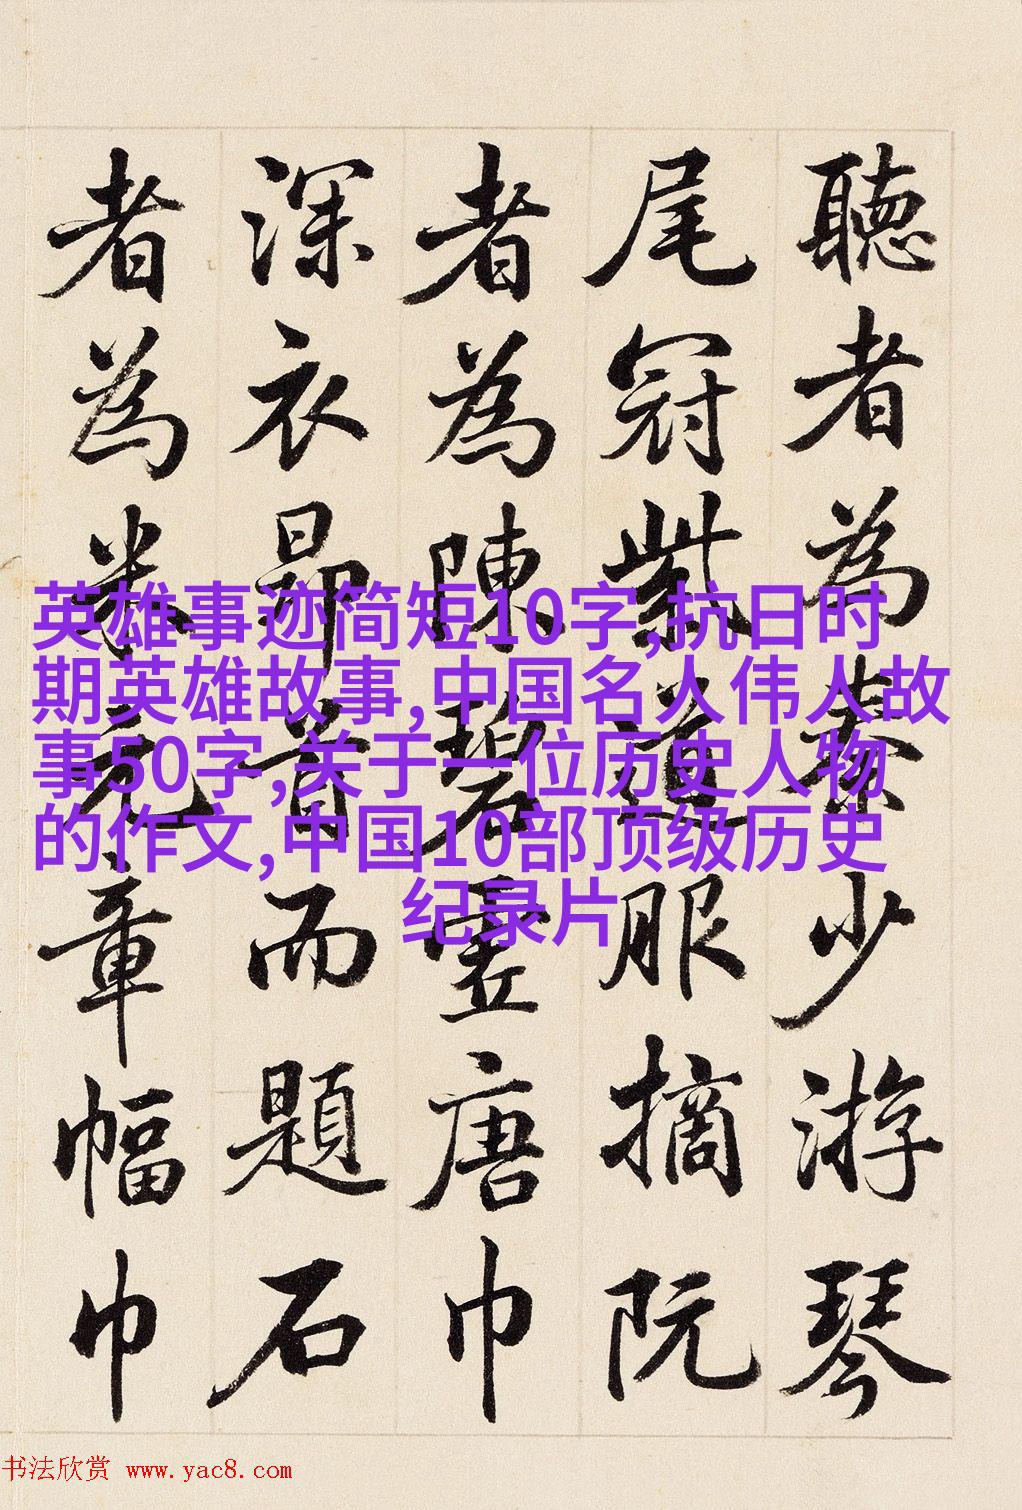 聽者為秦少游琴
尾冠紫道服摘阮
者為陳碧虛唐巾
深衣昂首而題石
者為米元章幅巾
英雄事迹简短10字,抗日时
期英雄故事,中国名人伟人故
事50字,关于一位历史人物
的作文,中国10部顶级历史
纪录片
书法欣赏 www.yac8.com